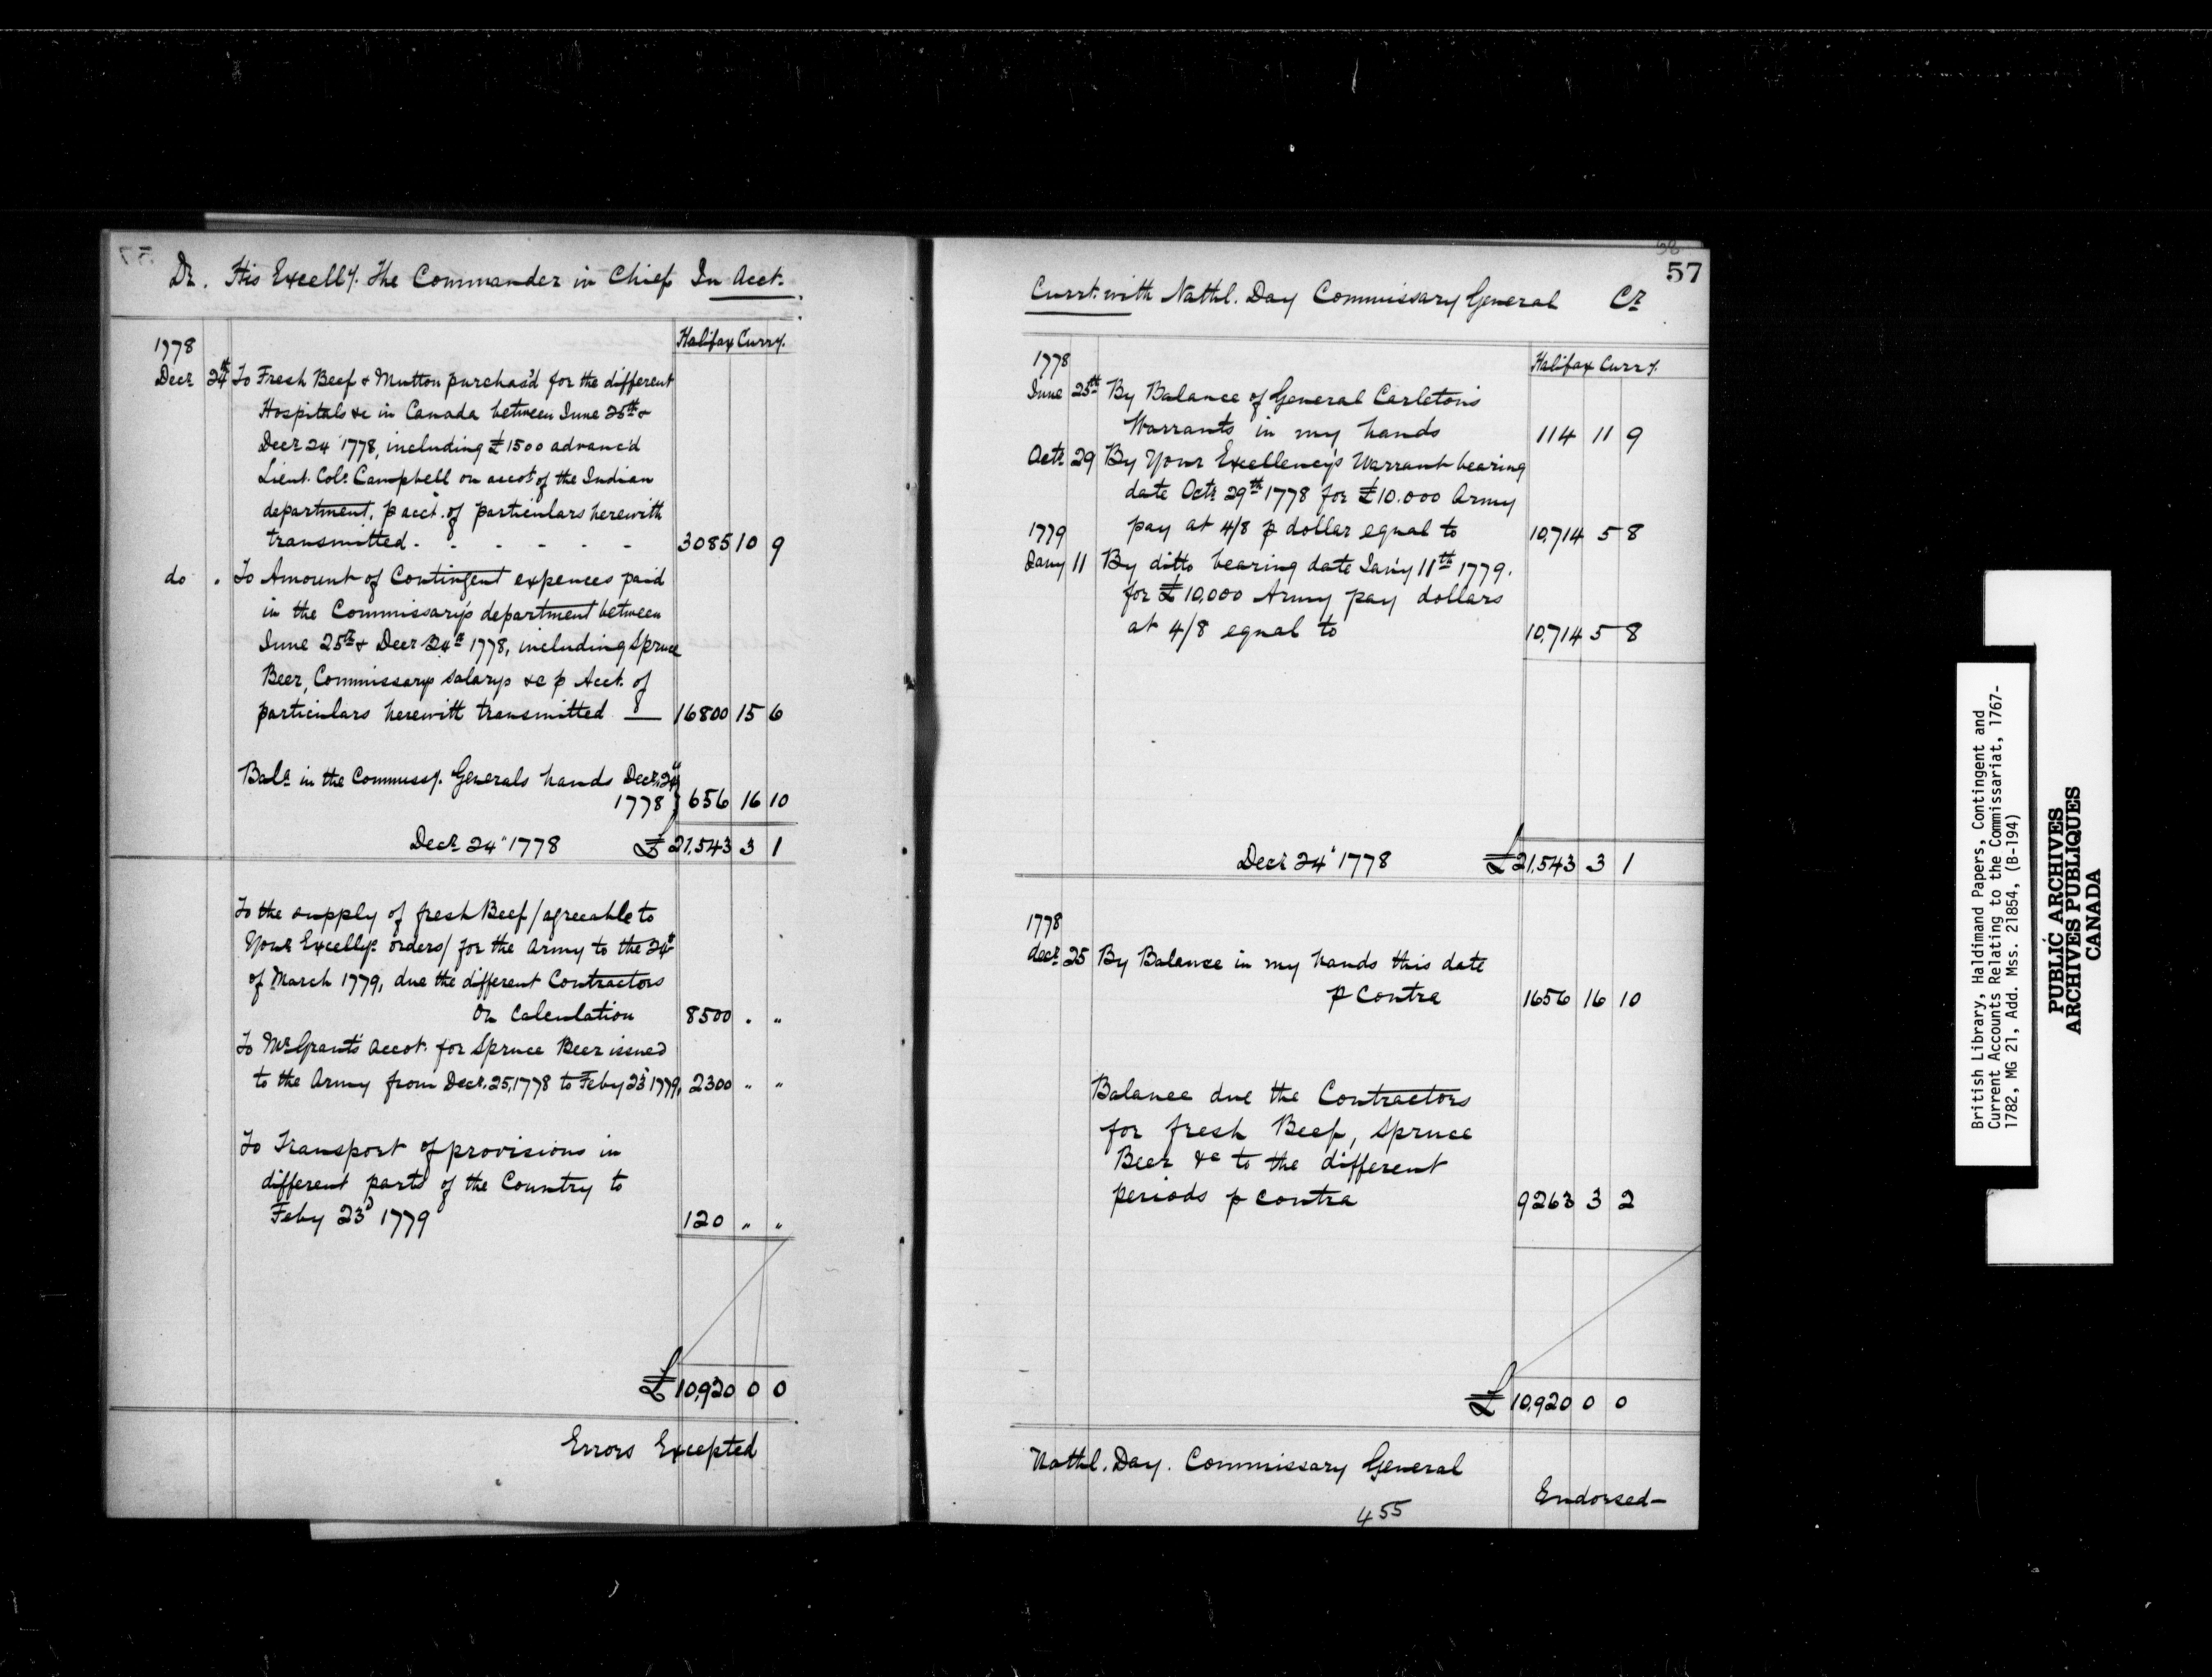 Dr. His Excelly. The Commander in Chief In Acct.
Halifax Curry.
1778
Decr 24th To Fresh Beef & Mutton purchas'd for the different
Hospitals &c in Canada between June 25th &
Decr 24 1778, including £1500 advanc'd
Lieut. Col. Campbell on accot of the Indian
department, p acct. of particulars herewith
transmitted - - - - - - 3085 10 9
do . To Amount of Contingent expences paid
in the Commissary's department between
June 25th & Decr 24th 1778, including Spruce
Beer, Commissarys salarys &c p Acct. of
particulars herewith transmitted — 16800 15 6
Balce in the Commissy. Generals hands Decr. 24"
1778 } 656 16 10
Decr 24" 1778 £21,543 3 1
To the supply of fresh Beef / agreeable to
Your Excellys orders / for the Army to the 24th
of March 1779, due the different Contractors
On Calculation 8500 . "
To Mr Grant's accot. for Spruce Beer issued
to the Army from Decr. 25, 1778 to Feby 23d 1779, 2300 " "
To Transport of provisions in
different parts of the Country to
Feby 23d 1779 120 " "
£10,920 0 0
Errors Excepted
57
Currt. with Nathl. Day Commissary General Cr
Halifax Curry.
1778
June 25th By Balance of General Carleton's
Warrants in my hands 114 11 9
Octr 29 By Your Excellency's Warrant bearing
date Octr 29th 1778 for £10.000 Army
pay at 4/8 p dollar equal to 10,714 5 8
1779
Jany 11 By ditto bearing date Jan'y 11th 1779.
for £10,000 Army pay dollars
at 4/8 equal to 10,714 5 8
Decr 24' 1778 £21,543 3 1
1778
decr 25 By Balance in my hands this date
p Contra 1656 16 10
Balance due the Contractors
for fresh Beef, Spruce
Beer &c to the different
periods p contra 9263 3 2
£10,920 0 0
Nathl. Day. Commissary General
Endorsed—
455
British Library, Haldimand Papers, Contingent and
Current Accounts Relating to the Commissariat, 1767-
1782, MG 21, Add. Mss. 21854, (B-194)
PUBLIC ARCHIVES
ARCHIVES PUBLIQUES
CANADA